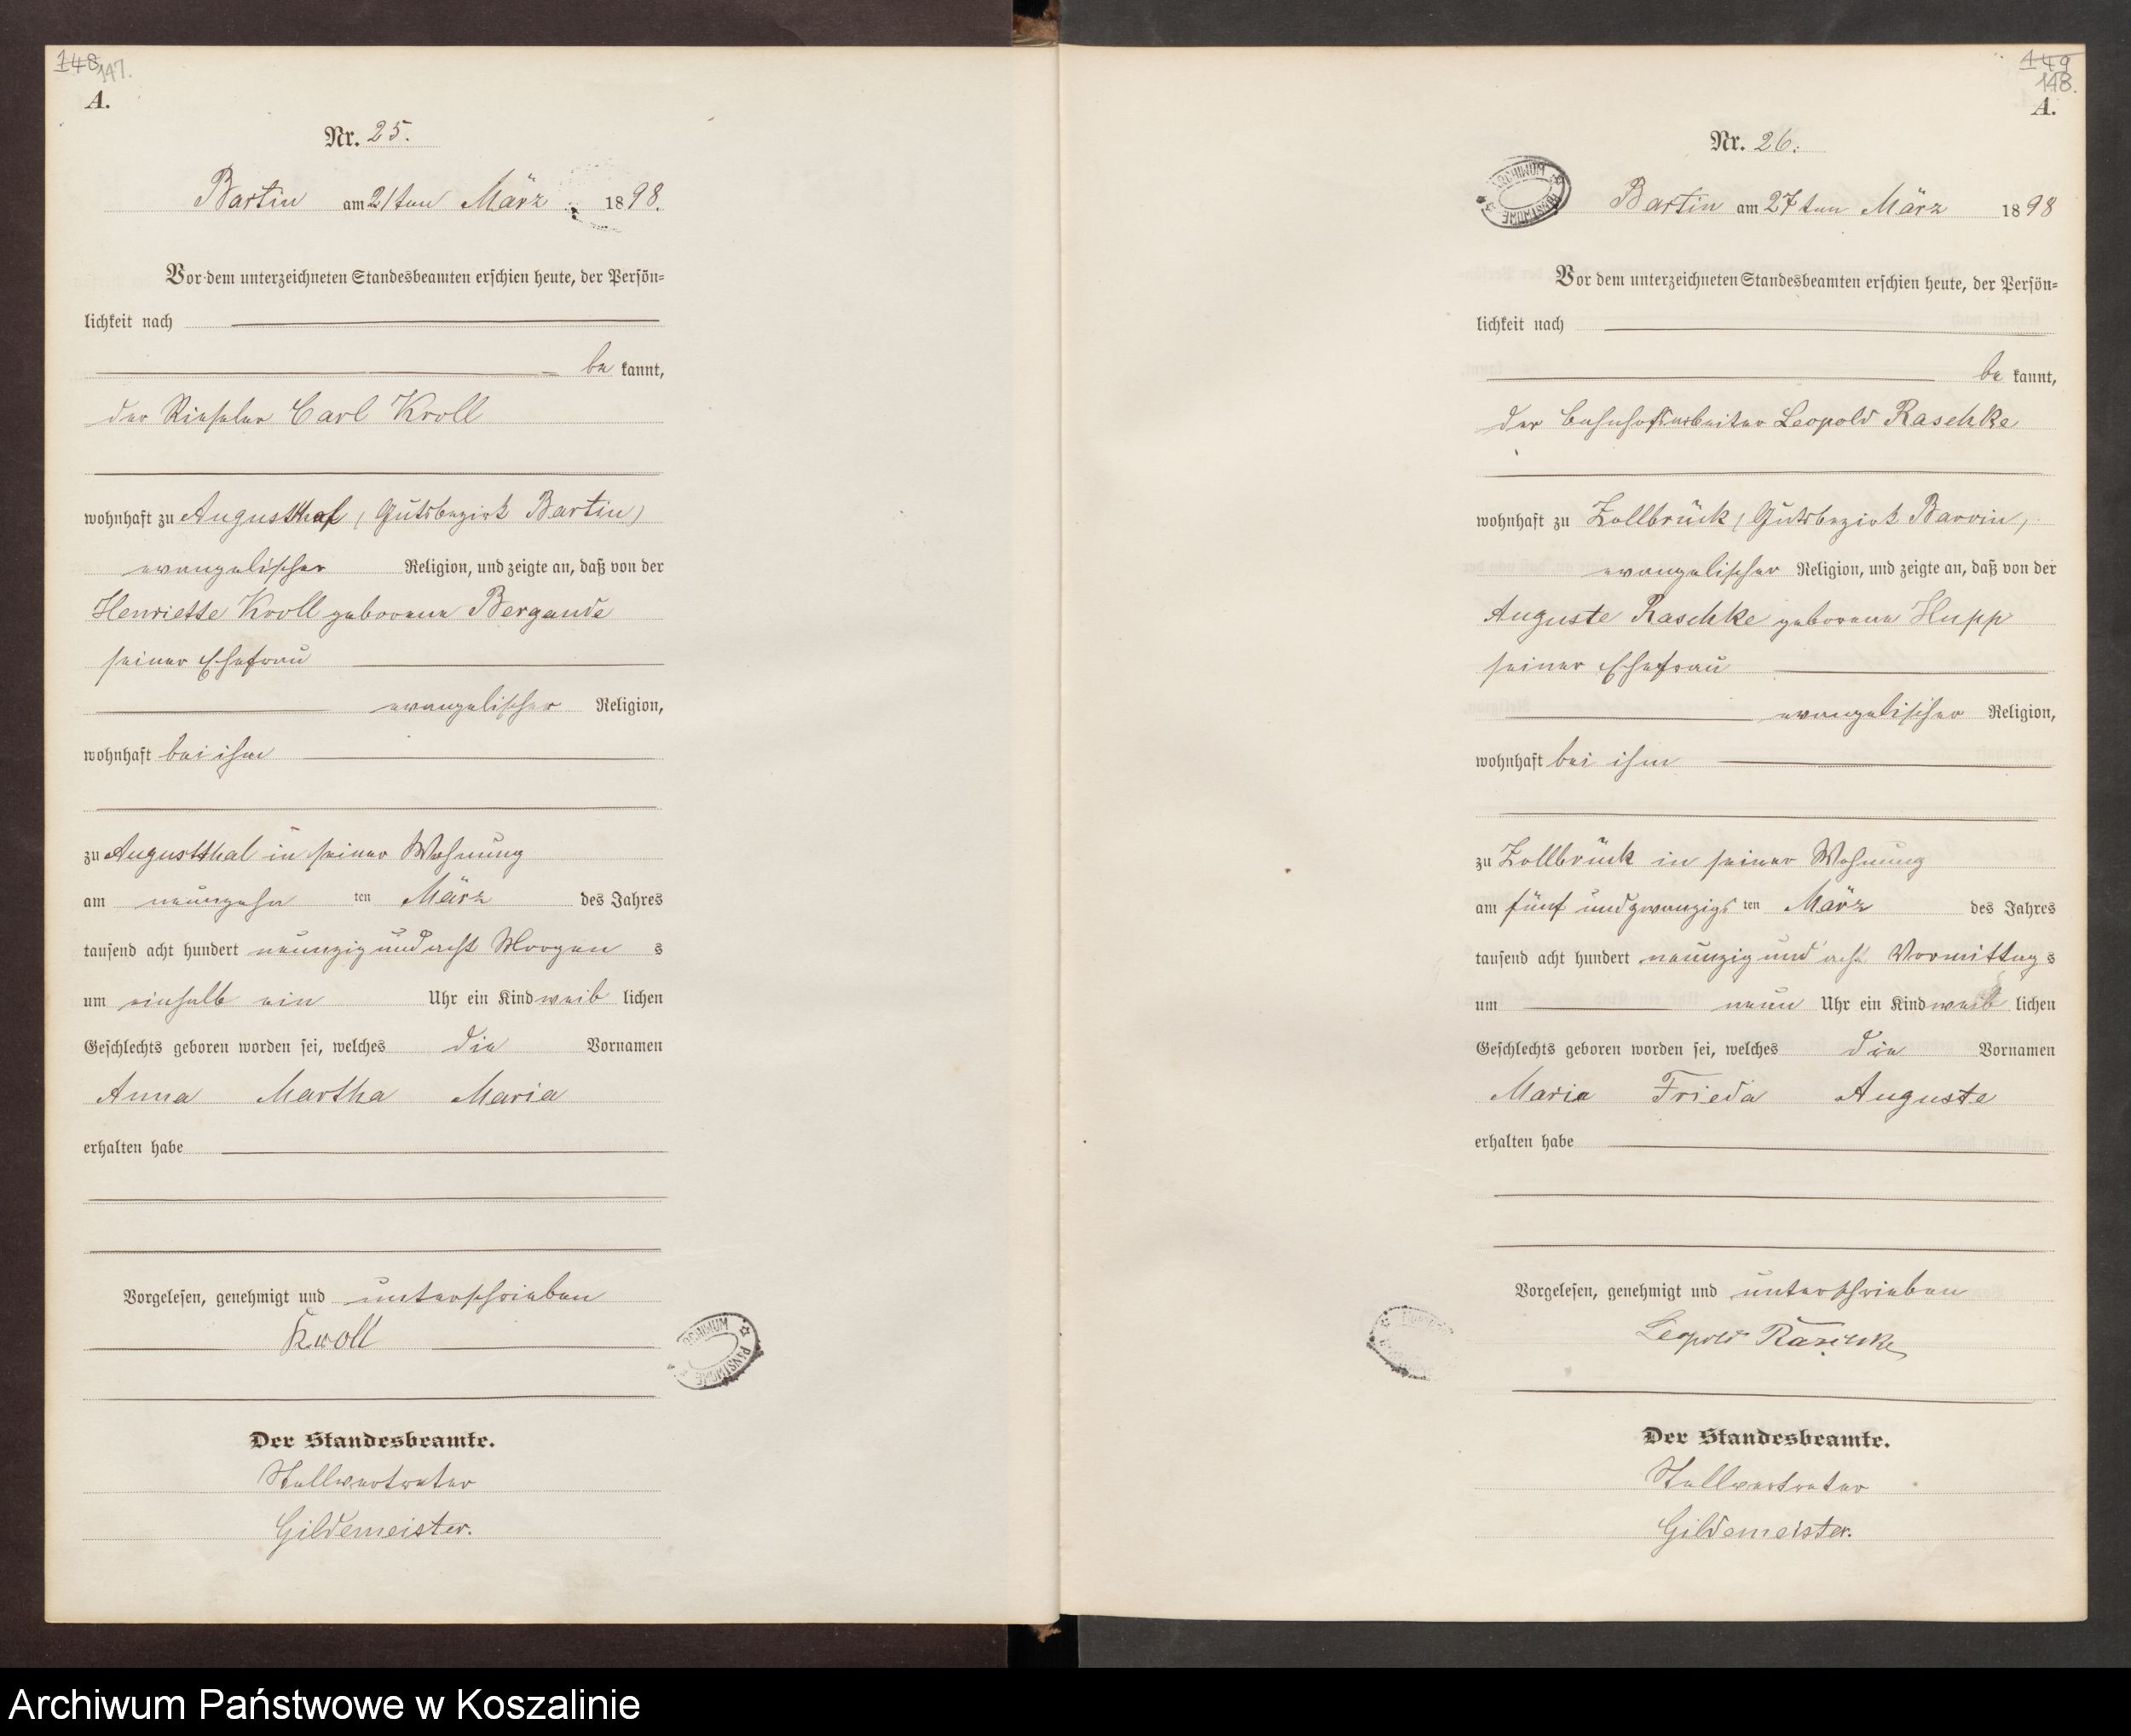 148 147.
A.
Nr. 25.
Bartin am 21ten März 1898.
Vor dem unterzeichneten Standesbeamten erschien heute, der Persön=
lichkeit nach
be kannt,
der Rieseler Carl Kroll
wohnhaft zu Augustthal (Gutsbezirk Bartin)
evangelischer Religion, und zeigte an, daß von der
Henriette Kroll geborene Bergande
seiner Ehefrau
evangelischer Religion,
wohnhaft bei ihm
zu Augustthal in seiner Wohnung
am neunzehn ten März des Jahres
tausend acht hundert neunzig und acht Morgen s
um einhalb ein Uhr ein Kind weib lichen
Geschlechts geboren worden sei, welches die Vornamen
Anna Martha Maria
erhalten habe
Vorgelesen, genehmigt und unterschrieben
Kroll
Der Standesbeamte.
Stellvertreter
Gildemeister.
ARCHIWUM PAŃSTWOWE
149
148.
A.
Nr. 26.
ARCHIWUM PAŃSTWOWE
Bartin am 27ten März 1898
Vor dem unterzeichneten Standesbeamten erschien heute, der Persön=
lichkeit nach
be kannt,
der Bahnhofsarbeiter Leopold Raschke
wohnhaft zu Zollbrück (Gutsbezirk Barvin)
evangelischer Religion, und zeigte an, daß von der
Auguste Raschke geborene Hupp
seiner Ehefrau
evangelischer Religion,
wohnhaft bei ihm
zu Zollbrück in seiner Wohnung
am fünf und zwanzigs ten März des Jahres
tausend acht hundert neunzig und acht Vormittag s
um neun Uhr ein Kind weib lichen
Geschlechts geboren worden sei, welches die Vornamen
Marie Frieda Auguste
erhalten habe
Vorgelesen, genehmigt und unterschrieben
Leopold Raschke
Der Standesbeamte.
Stellvertreter
Gildemeister.
Archiwum Państwowe w Koszalinie